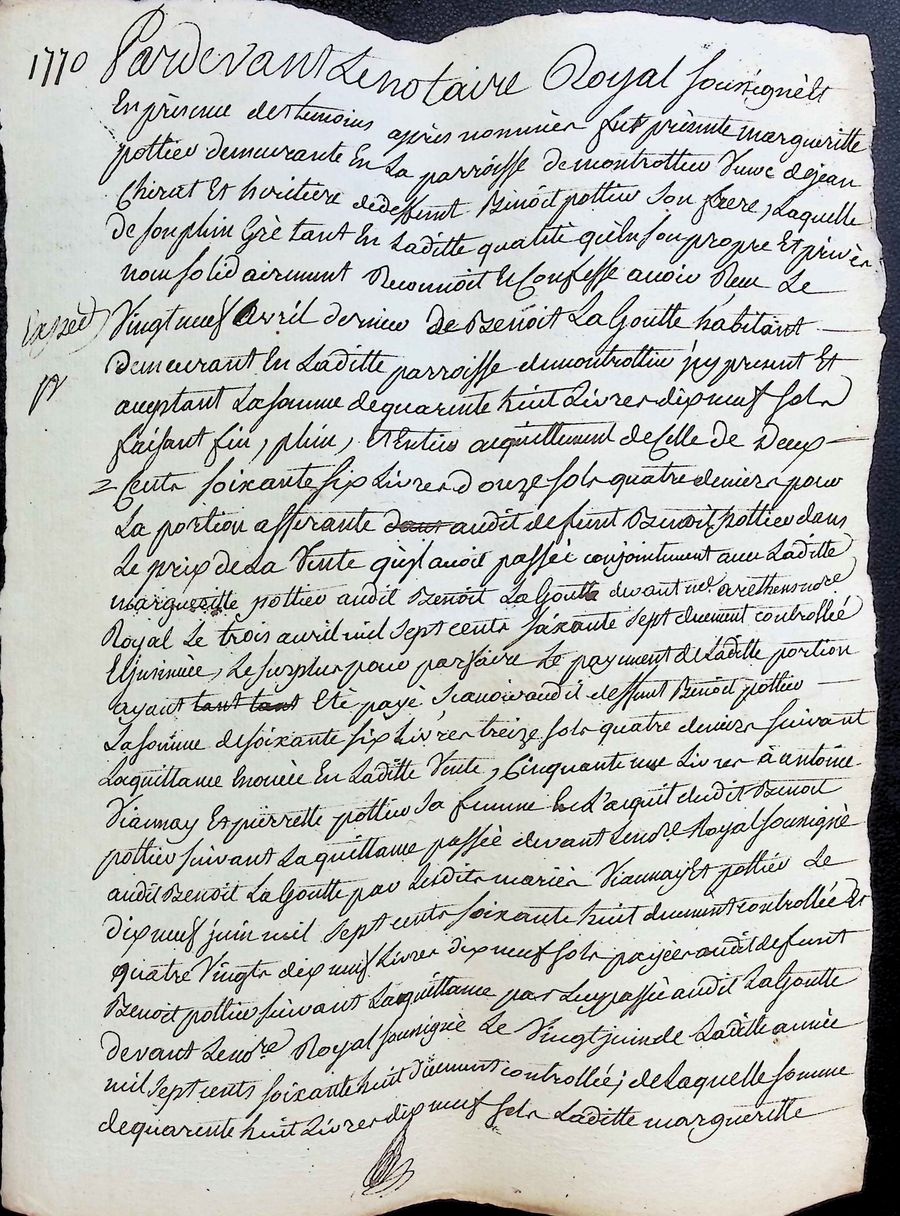 1770 Pardevant Le notaire Royal soussigné Et
En présence des temoins après nommés fut présente margueritte
pottier demeurante En La parroisse de montrottier Veuve de jean
Chirat Et heritiere dedeffunt Benoit pottier son frere, Laquelle
de son plein Gré tant En Laditte qualité qu'en son propre Et privé
nom solidairement Reconnoit Et Confesse avoir Reçu Le
Expéd Vingt neuf avril dernier de Benoit La Goutte habitant
demeurant En Laditte parroisse de montrottier icy present Et
acceptant La somme de quarente huit Livres dix neuf sols
faisant fin, plein, et Entier acquittement de Celle de Deux
= Cents soixante six Livres douze sols quatre deniers pour
La portion afferante dans audit defunt Benoit Pottier dans
Le prix de La Vente qu'il avoit passée conjointement avec Laditte
margueritte pottier audit Benoit La Goutte devant me. arethens nore
Royal Le trois avril mil sept cents soixante sept duement controllée
Et insinuée, Le surplus pour parfaire Le payement de Laditte portion
ayant tant tant Eté payé sçavoir audit deffunt Benoit pottier
La somme de soixante six Livres treize sols quatre deniers suivant
La quittance Enoncée En Laditte Vente, Cinquante une Livres à antoine
Viannay Et pierrette pottier sa femme En L'acquit dudit Benoit
pottier suivant La quittance passée devant Le nore Royal soussigné
audit Benoit La Goutte par Lesdits mariés Viannay Et pottier Le
dix neuf juin mil sept cents soixante huit duement controllée Et
quatre Vingts dix neuf Livres dix neuf sols payées audit defunt
Benoit pottier suivant La quittance par Luy passée audit La Goutte
devant Le nore Royal soussigné Le Vingt juin de Laditte année
mil sept cents soixante huit duement controllée; de Laquelle somme
de quarente huit Livres dix neuf sols Laditte margueritte